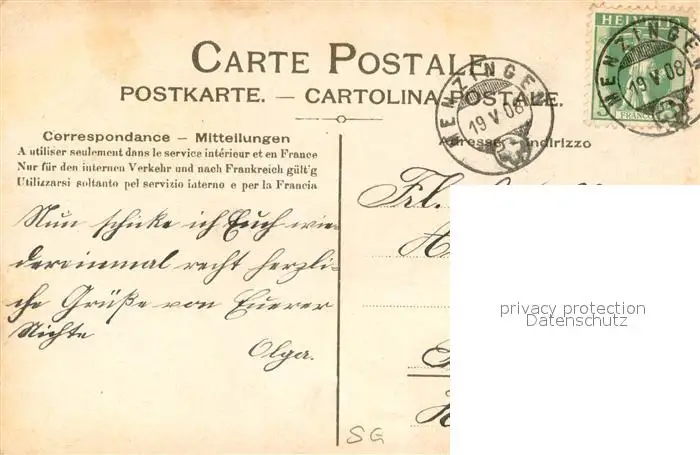 CARTE POSTALE
POSTKARTE. — CARTOLINA POSTALE.
MENZINGEN
19 V 08
HELVETIA
FRANCO
MENZINGEN
19 V 08
Correspondance — Mitteilungen
A utiliser seulement dans le service intérieur et en France
Nur für den internen Verkehr und nach Frankreich gült'g
Utilizzarsi soltanto pel servizio interno e per la Francia
Adresse Indirizzo
Nun schicke ich Euch wie-
dereinmal recht herzli-
che Grüße von Euerer
Nichte
Olga.
Frl.
SG
privacy protection
Datenschutz